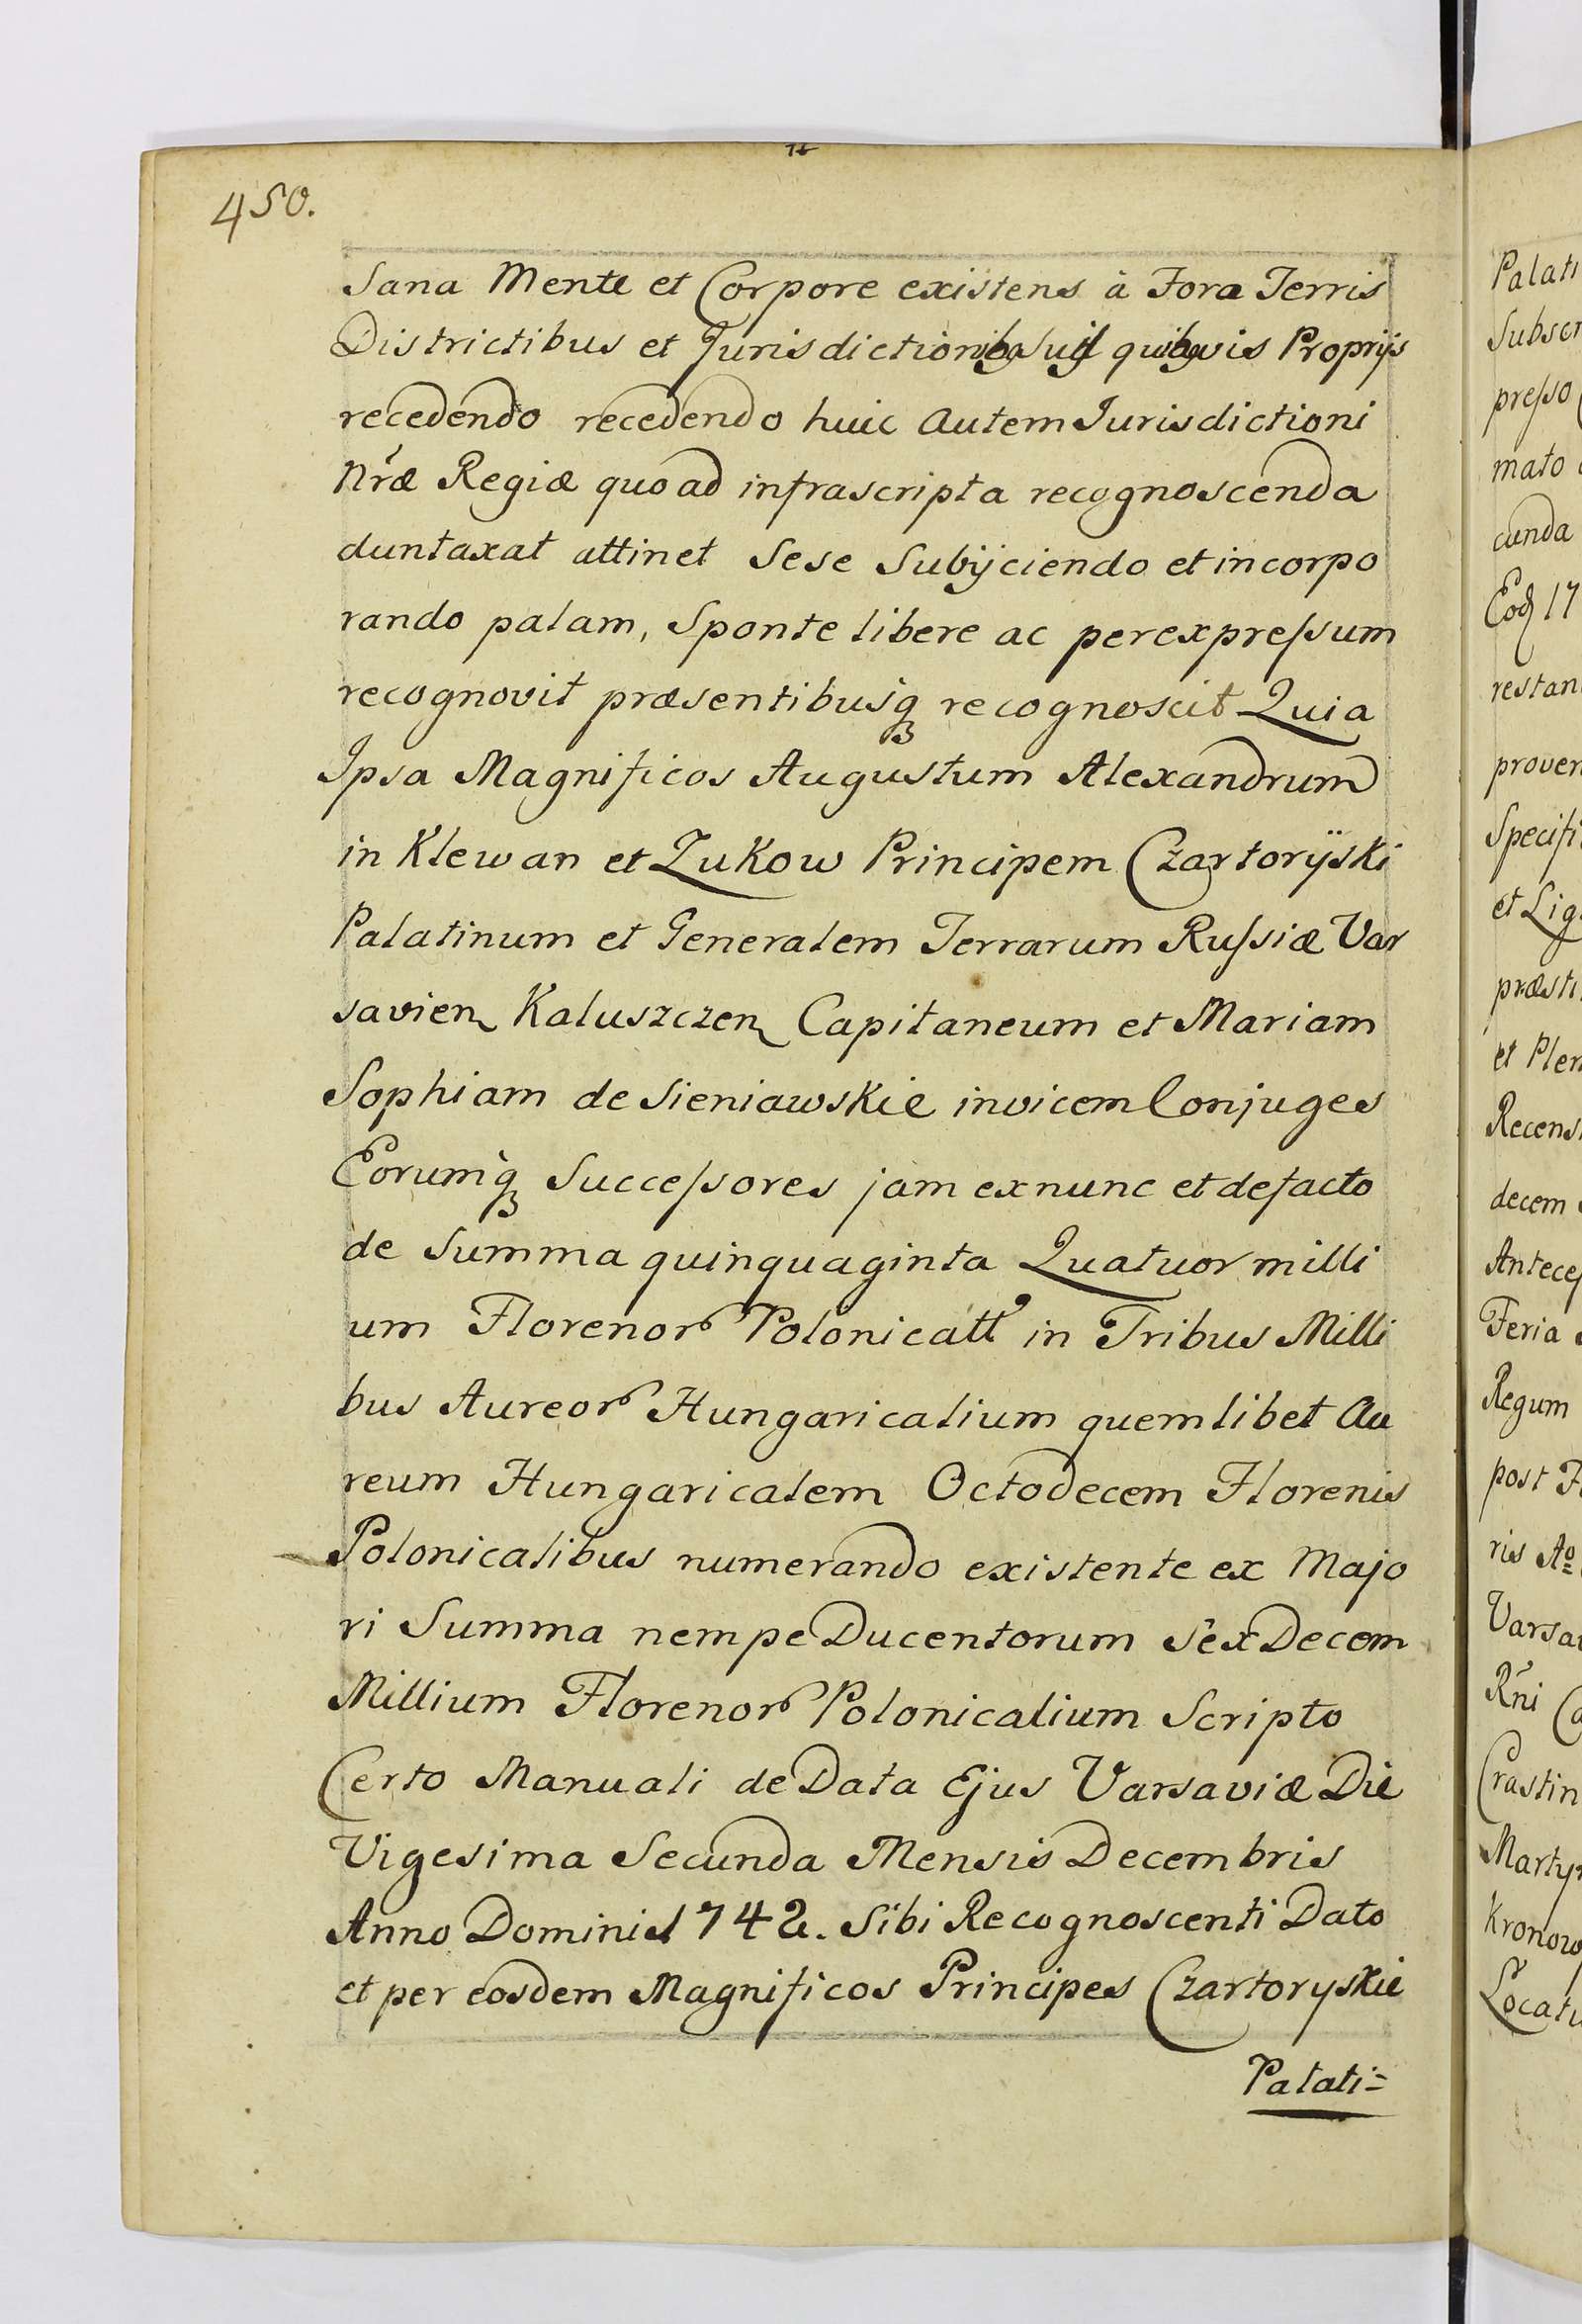 450.
Sana Mente et Corpore existens à Fora Terris
Districtibus et Jurisdictionibq Suis quibqvis Proprijs
recedendo recedendo huic autem Jurisdictioni
Nr̃æ Regiæ quo ad infrascripta recognoscenda
duntaxat attinet Sese Subijciendo et incorpo
rando palam, Sponte libere ac perexpreſsum
recognovit præsentibusq̃ recognoscit Quia
Ipsa Magnificos Augustum Alexandrum
in Klewan et Zukow Principem Czartorÿski
Palatinum et Generalem Terrarum Ruſsiæ Var
savien Kaluszczen Capitaneum et Mariam
Sophiam de Sieniawskie invicem Conjuges
Eorumq̃ Succeſsores jam exnunc et defacto
de Summa quinquaginta Quatuor milli
um Florenor Polonicall in Tribus Milli
bus Aureor Hungaricalium quemlibet Au
reum Hungaricalem Octodecem Florenis
Polonicalibus numerando existente ex Majo
ri Summa nempe Ducentorum SexDecem
Millium Florenor Polonicalium Scripto
Certo Manuali de Data Ejus Varsaviæ Die
Vigesima Secunda Mensis Decembris
Anno Domini 1742. Sibi Recognoscenti Dato
et per eosdem Magnificos Principes Czartoryskie
Palati=
Palati
Subscr
preſso
mato
cunda
Eod 17
restan
proven
Specifi
et Lig
præsti
et Plen
Recens
decem
Anteceſ
Feria
Regum
post F
ris Ao
Varsa
Rñi Ca
Crastin
Martyr
Kronow
Locatu